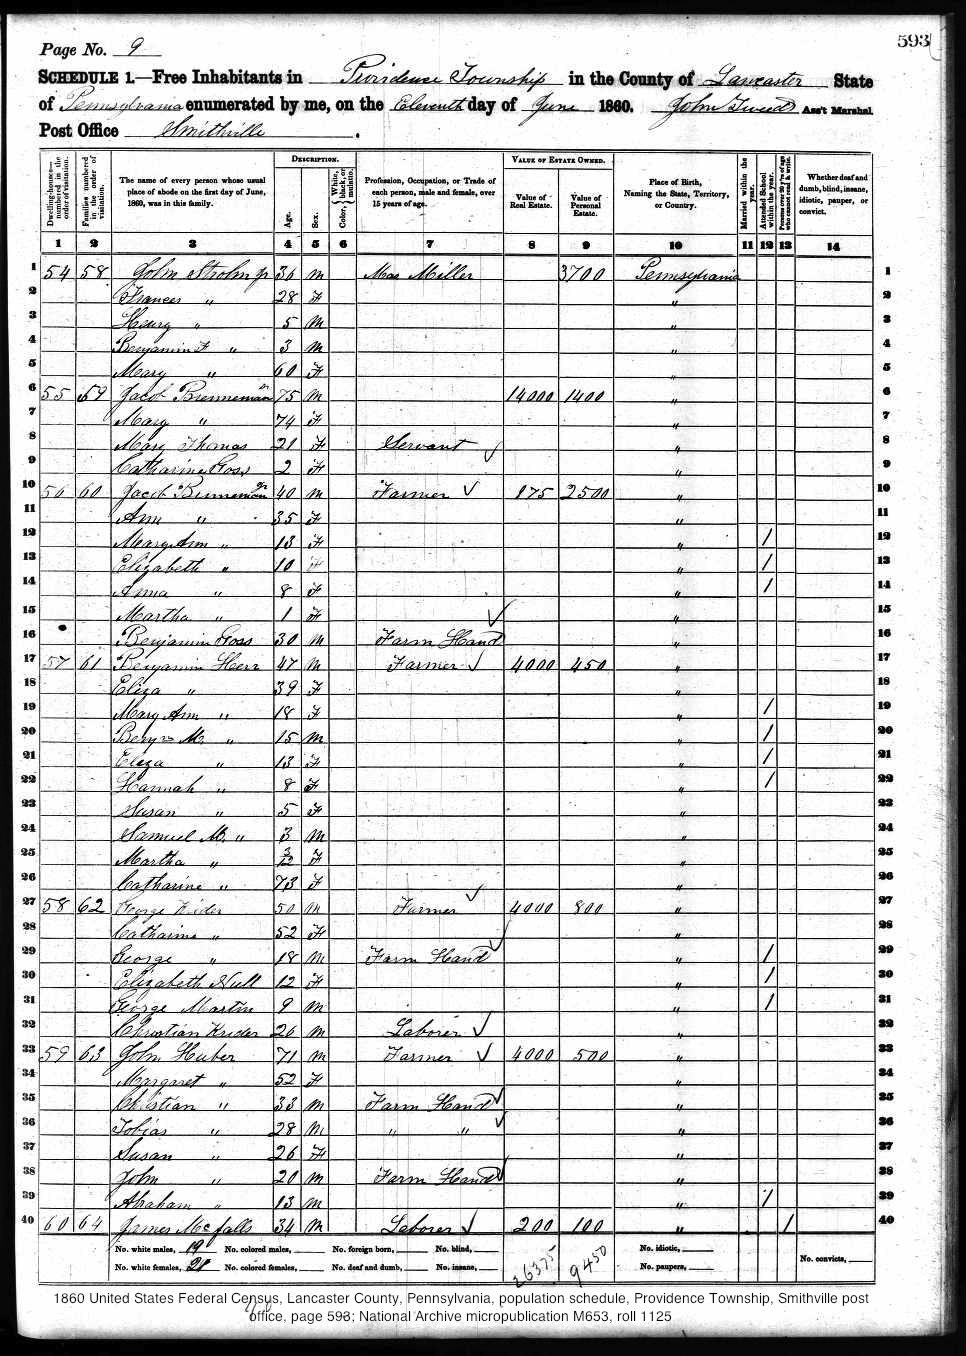 593
Page No. 9
SCHEDULE 1.—Free Inhabitants in Providence Township in the County of Lancaster State
of Pennsylvania enumerated by me, on the Eleventh day of June 1860. John Tweed Ass't Marshal.
Post Office Smithville.
Dwelling-houses—numbered in the order of visitation.
Families numbered in the order of visitation.
The name of every person whose usual place of abode on the first day of June, 1860, was in this family.
DESCRIPTION.
Age.
Sex.
Color, { White, black, or mulatto.
Profession, Occupation, or Trade of each person, male and female, over 15 years of age.
VALUE OF ESTATE OWNED.
Value of Real Estate.
Value of Personal Estate.
Place of Birth, Naming the State, Territory, or Country.
Married within the year.
Attended School within the year.
Persons over 20 y'rs of age who cannot read & write.
Whether deaf and dumb, blind, insane, idiotic, pauper, or convict.
1 2 3 4 5 6 7 8 9 10 11 12 13 14
1 54 58 John Strohm jr 36 m Mas Miller 3700 Pennsylvania 1
2 Frances " 28 F " 2
3 Henry " 5 m " 3
4 Benjamin F " 3 m " 4
5 Mary " 60 F " 5
6 55 59 Jacob Brenneman sr 75 m 14000 1400 " 6
7 Mary " 74 F " 7
8 Mary Thomas 21 F Servant " 8
9 Catharine Goss 2 F " 9
10 56 60 Jacob Brenneman jr 40 m Farmer 175 2500 " 10
11 Ann " 35 F " 11
12 Mary Ann " 13 F " / 12
13 Elizabeth " 10 F " / 13
14 Anna " 8 F " / 14
15 Martha " 1 F " 15
16 Benjamin Goss 30 m Farm Hand " 16
17 57 61 Benjamin Herr 47 m Farmer 4000 450 " 17
18 Eliza " 39 F " 18
19 Mary Ann " 18 F " / 19
20 Benjn M. " 15 m " / 20
21 Eliza " 13 F " / 21
22 Hannah " 8 F " / 22
23 Susan " 5 F " 23
24 Samuel M. " 3 m " 24
25 Martha " 3/12 F " 25
26 Catharine " 73 F " 26
27 58 62 George Krider 50 m Farmer 4000 800 " 27
28 Catharine " 52 F " 28
29 George " 18 m Farm Hand " / 29
30 Elizabeth Null 12 F " / 30
31 George Martin 9 m " / 31
32 Christian Krider 26 m Laborer " 32
33 59 63 John Huber 71 m Farmer 4000 500 " 33
34 Margaret " 52 F " 34
35 Christian " 33 m Farm Hand " 35
36 Tobias " 28 m " " " 36
37 Susan " 26 F " 37
38 John " 20 m Farm Hand " 38
39 Abraham " 13 m " / 39
40 60 64 James Mc falls 34 m Laborer 200 100 " / 40
No. white males, 19 No. colored males, No. foreign born, No. blind, No. idiotic,
No. white females, 21 No. colored females, No. deaf and dumb, No. insane, 26375 9450 No. paupers, No. convicts,
1860 United States Federal Census, Lancaster County, Pennsylvania, population schedule, Providence Township, Smithville post
office, page 593; National Archive micropublication M653, roll 1125